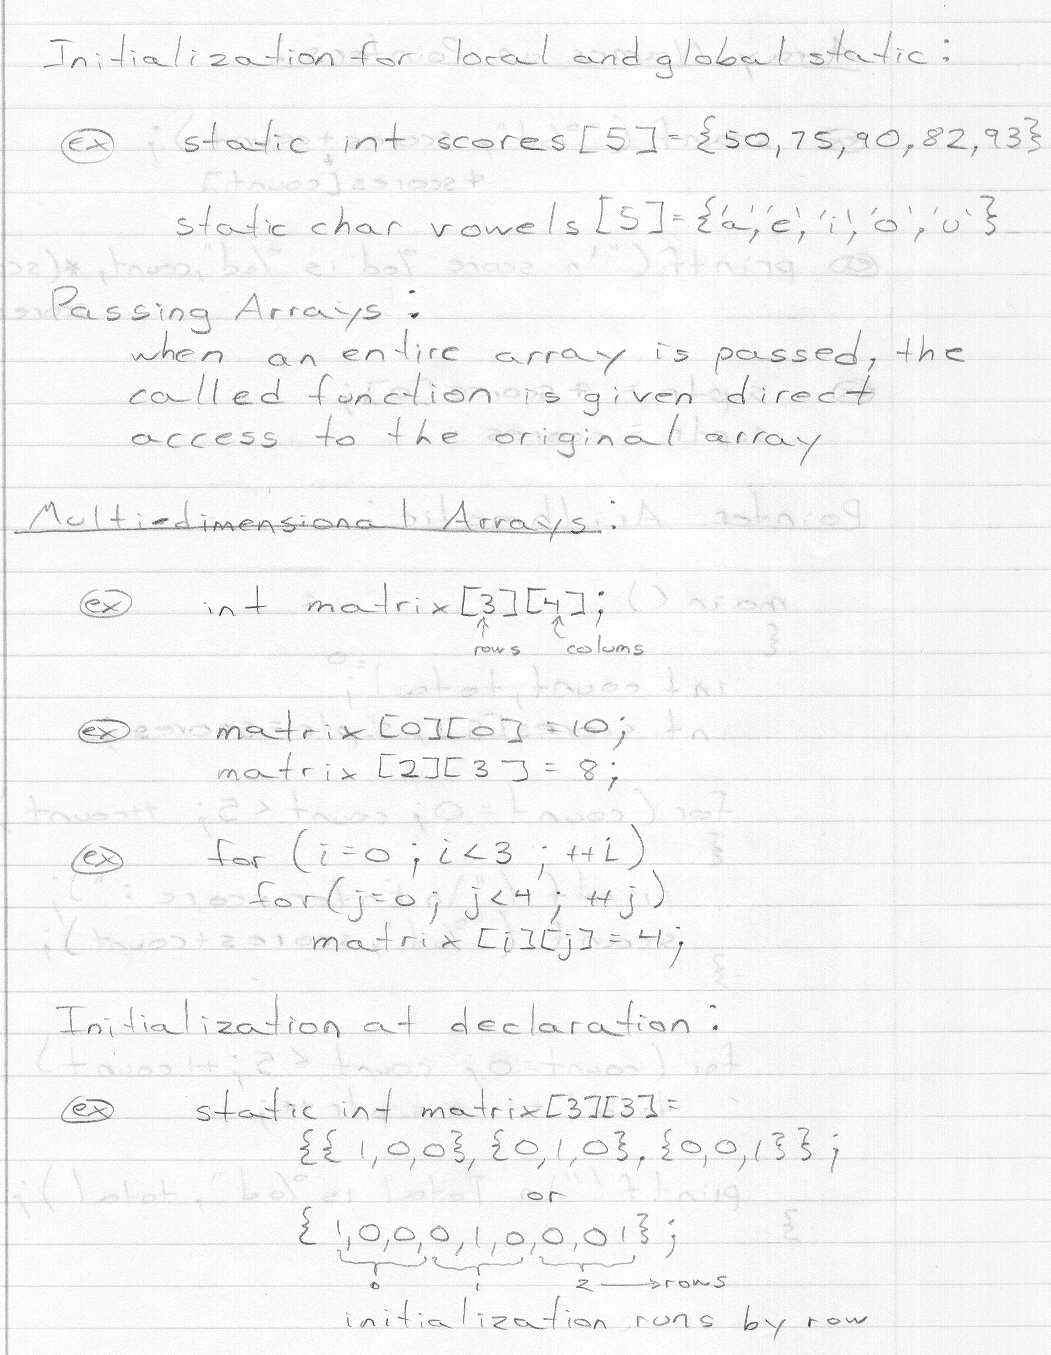 Initialization for local and global static:
ex static int scores[5]={50,75,90,82,93}
static char vowels[5]={'a','e','i','o','u'}
Passing Arrays:
when an entire array is passed, the
called function is given direct
access to the original array
Multi-dimensional Arrays:
ex int matrix[3][4];
rows colums
ex matrix[0][0]=10;
matrix[2][3]=8;
ex for (i=0; i<3; ++i)
for(j=0; j<4; ++j)
matrix[i][j]=4;
Initialization at declaration:
ex static int matrix[3][3]=
{{1,0,0},{0,1,0},{0,0,1}};
or
{1,0,0,0,1,0,0,0,1};
0 1 2 → rows
initialization runs by row